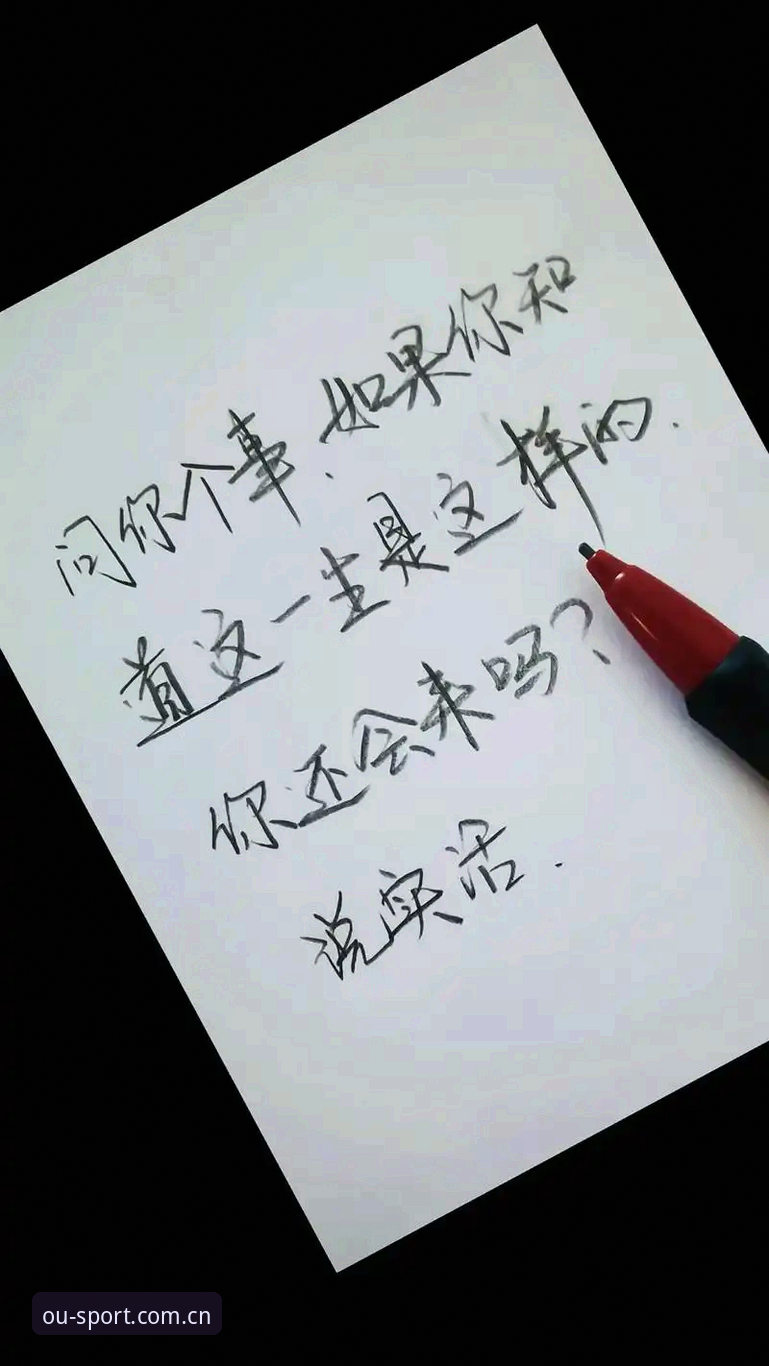 问你个事.如果你知
道这一生是这样的.
你还会来吗?
说实话.
ou-sport.com.cn